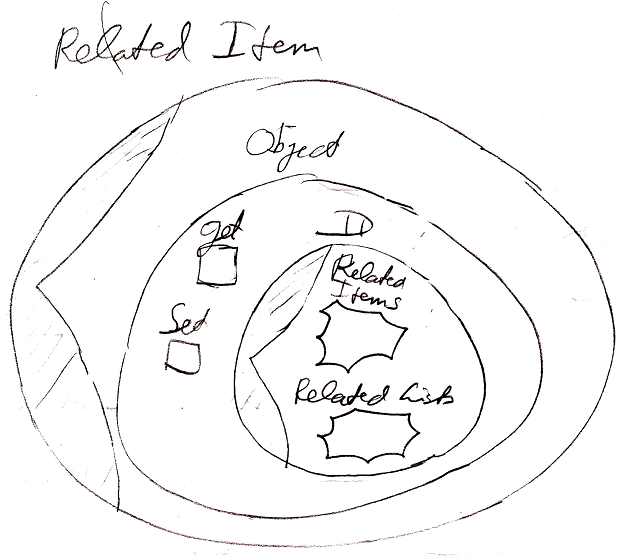 Related Item
Object
get
ID
Set
Related
Items
Related Lists